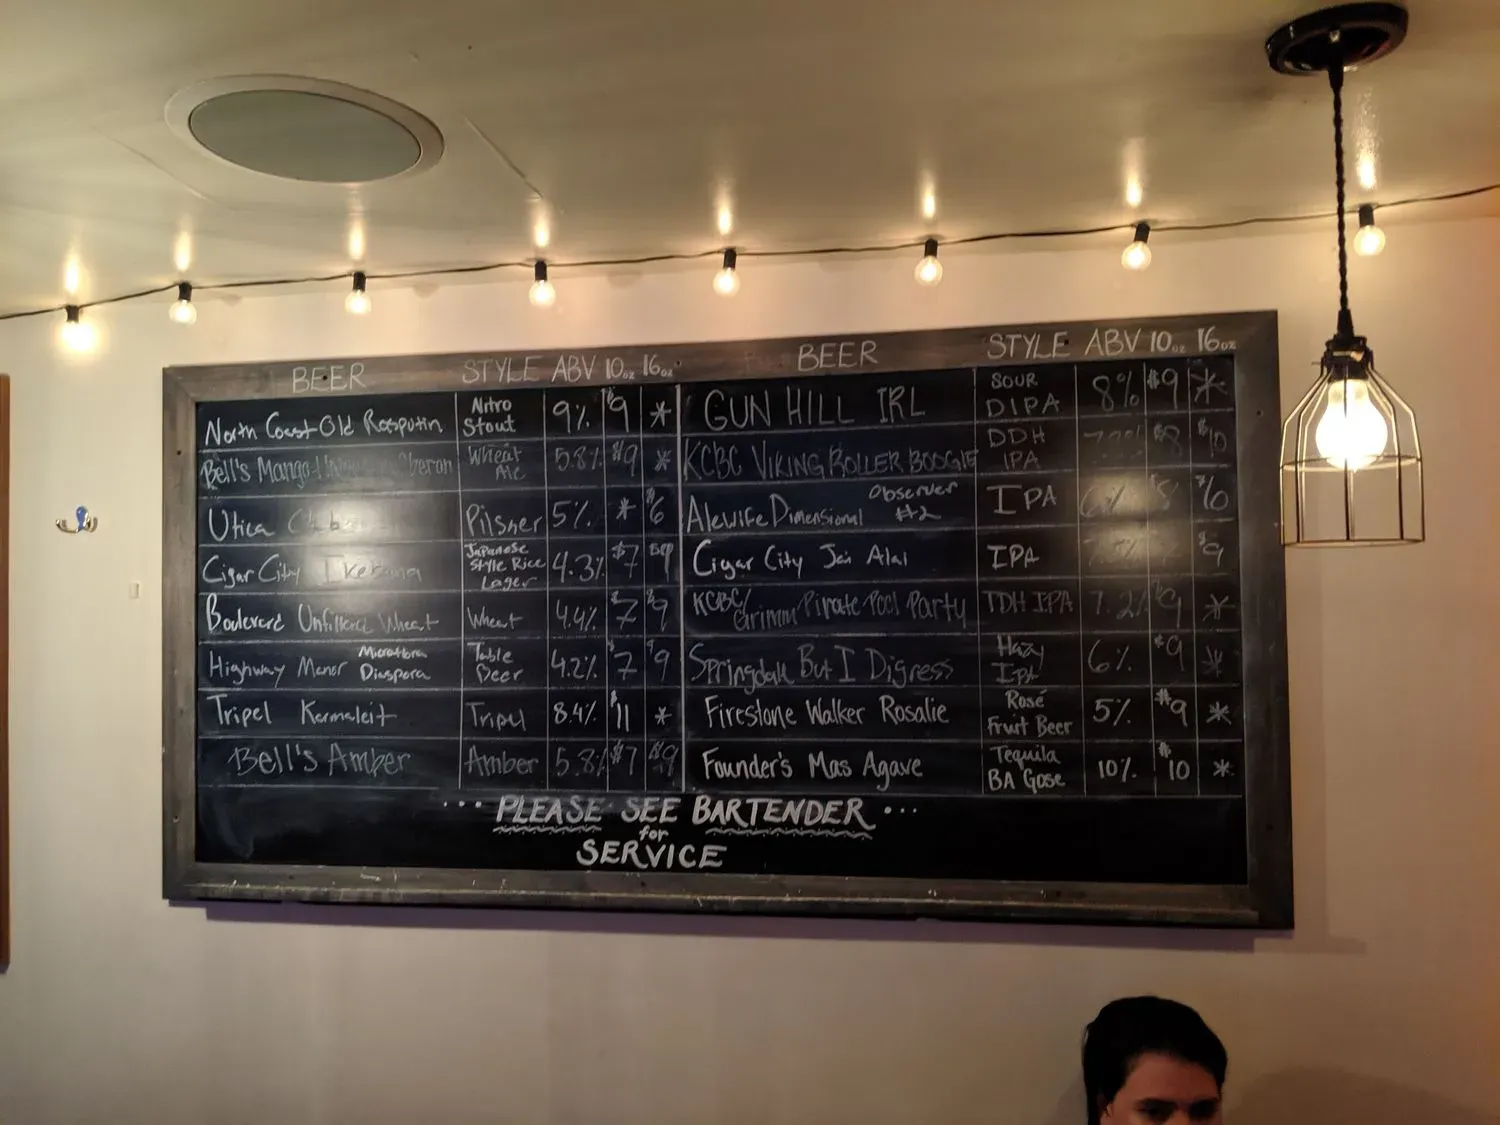 BEER STYLE ABV 10oz 16oz BEER STYLE ABV 10oz 16oz
North Coast Old Rasputin Nitro Stout 9% $9 *
Bell's Mango Oberon Wheat Ale 5.8% $9 *
Utica Club Pilsner 5% * $6
Cigar City Japanese Style Rice Lager 4.3% $7 $9
Boulevard Unfiltered Wheat Wheat 4.4% $7 $9
Highway Manor Microflora Diaspora Table Beer 4.2% $7 $9
Tripel Karmeleit Tripel 8.4% $11 *
Bell's Amber Amber 5.8% $7 $9
GUN HILL IRL SOUR DIPA 8% $9 *
KCBC VIKING ROLLER BOOGIE DDH IPA $8 $10
Alewife Dimensional Observer #2 IPA $10
Cigar City Jai Alai IPA $9
KCBC/Grimm Pirate Pool Party TDH IPA 7.2% $9 *
Springdale But I Digress Hazy IPA 6% $9 *
Firestone Walker Rosalie Rosé Fruit Beer 5% $9 *
Founder's Mas Agave Tequila BA Gose 10% $10 *
... PLEASE SEE BARTENDER ...
for
SERVICE